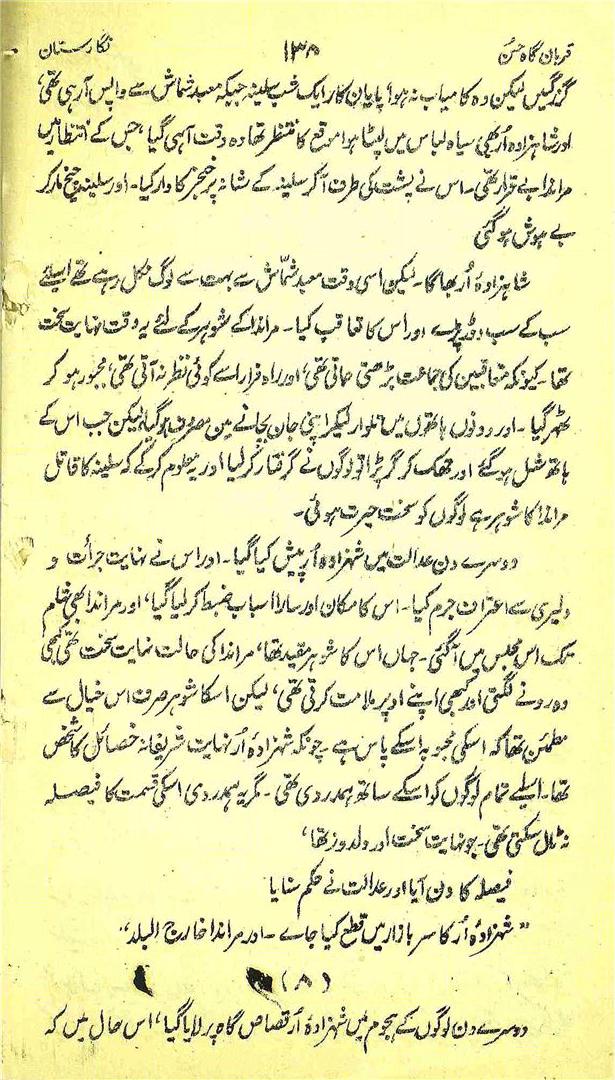 قربان گاہ حسن ۱۳۸ نگارستان
گزر گئیں لیکن وہ کامیاب نہ ہوا پایان کار ایک شب سلینہ جبکہ معبد شماش سے واپس آرہی تھی،
اور شاہزادہ اُر بھی سیاہ لباس میں لپٹا ہوا موقع کا منتظر تھا وہ وقت آہی گیا، جس کے انتظار میں
مراندا بے قرار تھی۔ اس نے پشت کی طرف آکر سلینہ کے شانہ پر خنجر کا وار کیا۔ اور سلینہ چیخ مار کر
بے ہوش ہو گئی
شاہزادۂ اُر بھاگا۔ لیکن اسی وقت معبد شمّاش سے بہت سے لوگ نکل رہے تھے اسلئے
سب کے سب دوڑ پڑے اور اس کا تعاقب کیا۔ مراندا کے شوہر کے لئے یہ وقت نہایت سخت
تھا۔ کیونکہ متعاقبین کی جماعت بڑھتی جاتی تھی، اور راہ فرار اسے کوئی نظر نہ آتی تھی، مجبور ہو کر
ٹھہر گیا۔ اور دونوں ہاتھوں میں تلوار لیکر اپنی جان بچانے مین مصروف ہو گیا، لیکن جب اس کے
ہاتھ شل ہو گئے اور تھک کر گر پڑا تو لوگوں نے گرفتار کر لیا اور یہ معلوم کر کے کہ سلینہ کا قاتل
مراندا کا شوہر ہے لوگوں کو سخت حیرت ہوئی۔
دوسرے دن عدالت میں شہزادۂ اُر پیش کیا گیا۔ اور اس نے نہایت جرأت و
دلیری سے اعتراف جرم کیا۔ اس کا مکان اور سارا اسباب ضبط کر لیا گیا، اور مراندا بھی
تک اس مجلس میں آگئی۔ جہاں اس کا شوہر مقید تھا، مراندا کی حالت نہایت سخت تھی کبھی
وہ رونے لگتی اور کبھی اپنے اوپر ملامت کرتی تھی، لیکن اسکا شوہر صرف اس خیال سے
مطمئن تھا کہ اسکی محبوبہ اسکے پاس ہے۔ چونکہ شہزادۂ اُر نہایت شریفانہ خصائل کا شخص
تھا۔ اسلیے تمام لوگوں کو اسکے ساتھ ہمدردی تھی۔ مگر یہ ہمدردی اسکی قسمت کا فیصلہ
نہ ٹال سکتی تھی۔ جو نہایت سخت اور دلدوز تھا،
فیصلہ کا دن آیا اور عدالت نے حکم سنایا
"شہزادۂ اُر کا سر بازار میں قطع کیا جاے۔ اور مراندا خارج البلد"
(۸)
دوسرے دن لوگوں کے ہجوم میں شہزادۂ اُر قصاص گاہ پر لایا گیا، اس حال میں کہ